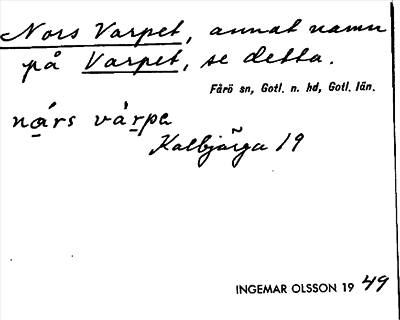 Nors Varpet, annat namn
på Varpet, se detta.
Fårö sn, Gotl. n. hd, Gotl. län.
nárs vàrpe
Kalbjärga 19
INGEMAR OLSSON 19 49